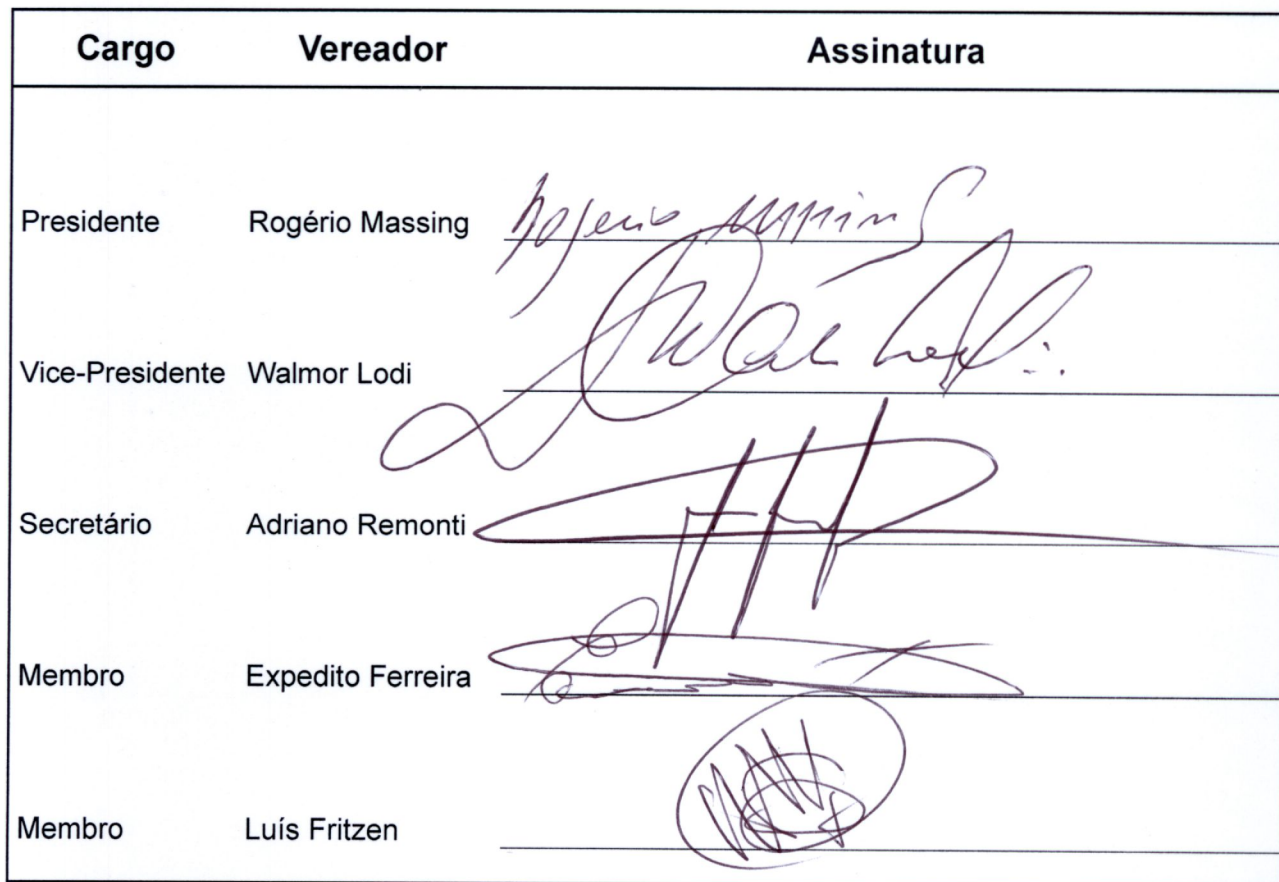 Cargo Vereador Assinatura
Presidente Rogério Massing Rogerio Massing
Vice-Presidente Walmor Lodi
Secretário Adriano Remonti
Membro Expedito Ferreira
Membro Luís Fritzen